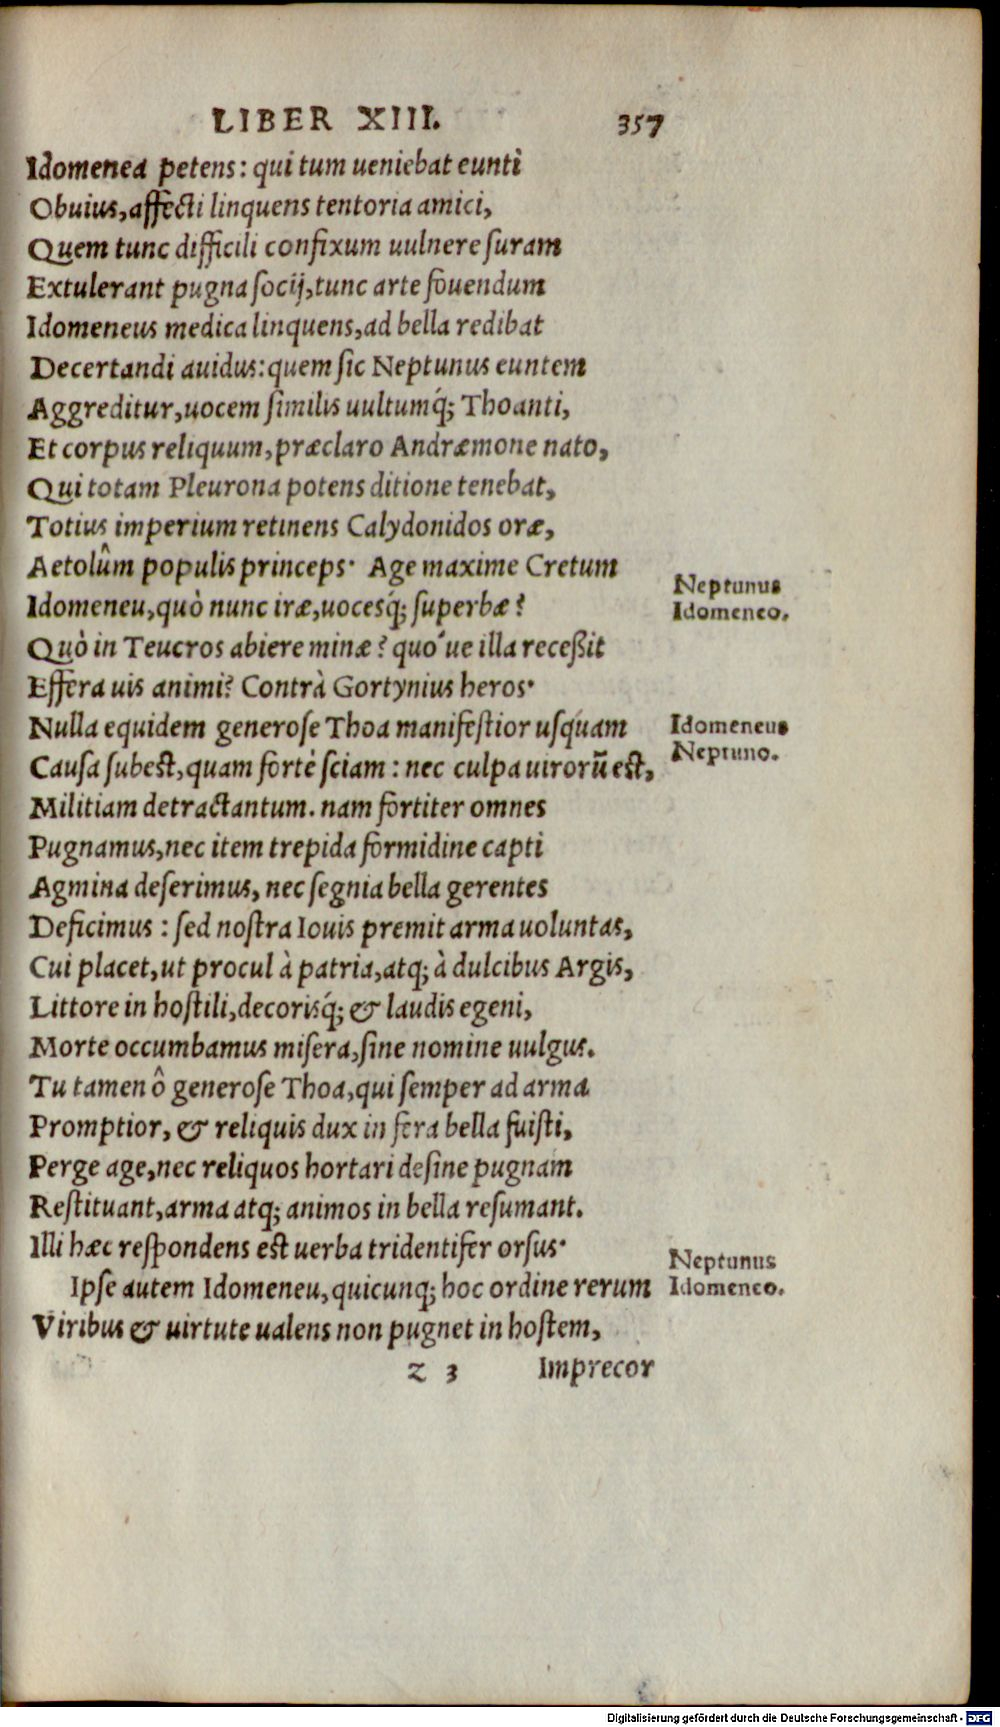 LIBER XIII. 357
Idomenea petens: qui tum ueniebat eunti
Obuius, affecti linquens tentoria amici,
Quem tunc difficili confixum uulnere ſuram
Extulerant pugna ſocij, tunc arte fouendum
Idomeneus medica linquens, ad bella redibat
Decertandi auidus: quem ſic Neptunus euntem
Aggreditur, uocem ſimilis uultumq́; Thoanti,
Et corpus reliquum, præclaro Andræmone nato,
Qui totam Pleurona potens ditione tenebat,
Totius imperium retinens Calydonidos oræ,
Aetolûm populis princeps· Age maxime Cretum
Neptunus
Idomeneo.
Idomeneu, quò nunc iræ, uocesq́; ſuperbæ?
Quò in Teucros abiere minæ? quó ue illa receßit
Effera uis animi? Contrà Gortynius heros·
Nulla equidem generoſe Thoa manifeſtior uſquam
Idomeneus
Neptuno.
Cauſa ſubeſt, quam fortè ſciam: nec culpa uirorũ eſt,
Militiam detractantum. nam fortiter omnes
Pugnamus, nec item trepida formidine capti
Agmina deſerimus, nec ſegnia bella gerentes
Deficimus: ſed noſtra Iouis premit arma uoluntas,
Cui placet, ut procul à patria, atq; à dulcibus Argis,
Littore in hoſtili, decorisq́; & laudis egeni,
Morte occumbamus miſera, ſine nomine uulgus.
Tu tamen ô generoſe Thoa, qui ſemper ad arma
Promptior, & reliquis dux in fera bella fuiſti,
Perge age, nec reliquos hortari deſine pugnam
Reſtituant, arma atq; animos in bella reſumant.
Illi hæc reſpondens eſt uerba tridentifer orſus·
Neptunus
Idomeneo.
Ipſe autem Idomeneu, quicunq; hoc ordine rerum
Viribus & uirtute ualens non pugnet in hoſtem,
z 3 Imprecor
Digitalisierung gefördert durch die Deutsche Forschungsgemeinschaft - DFG